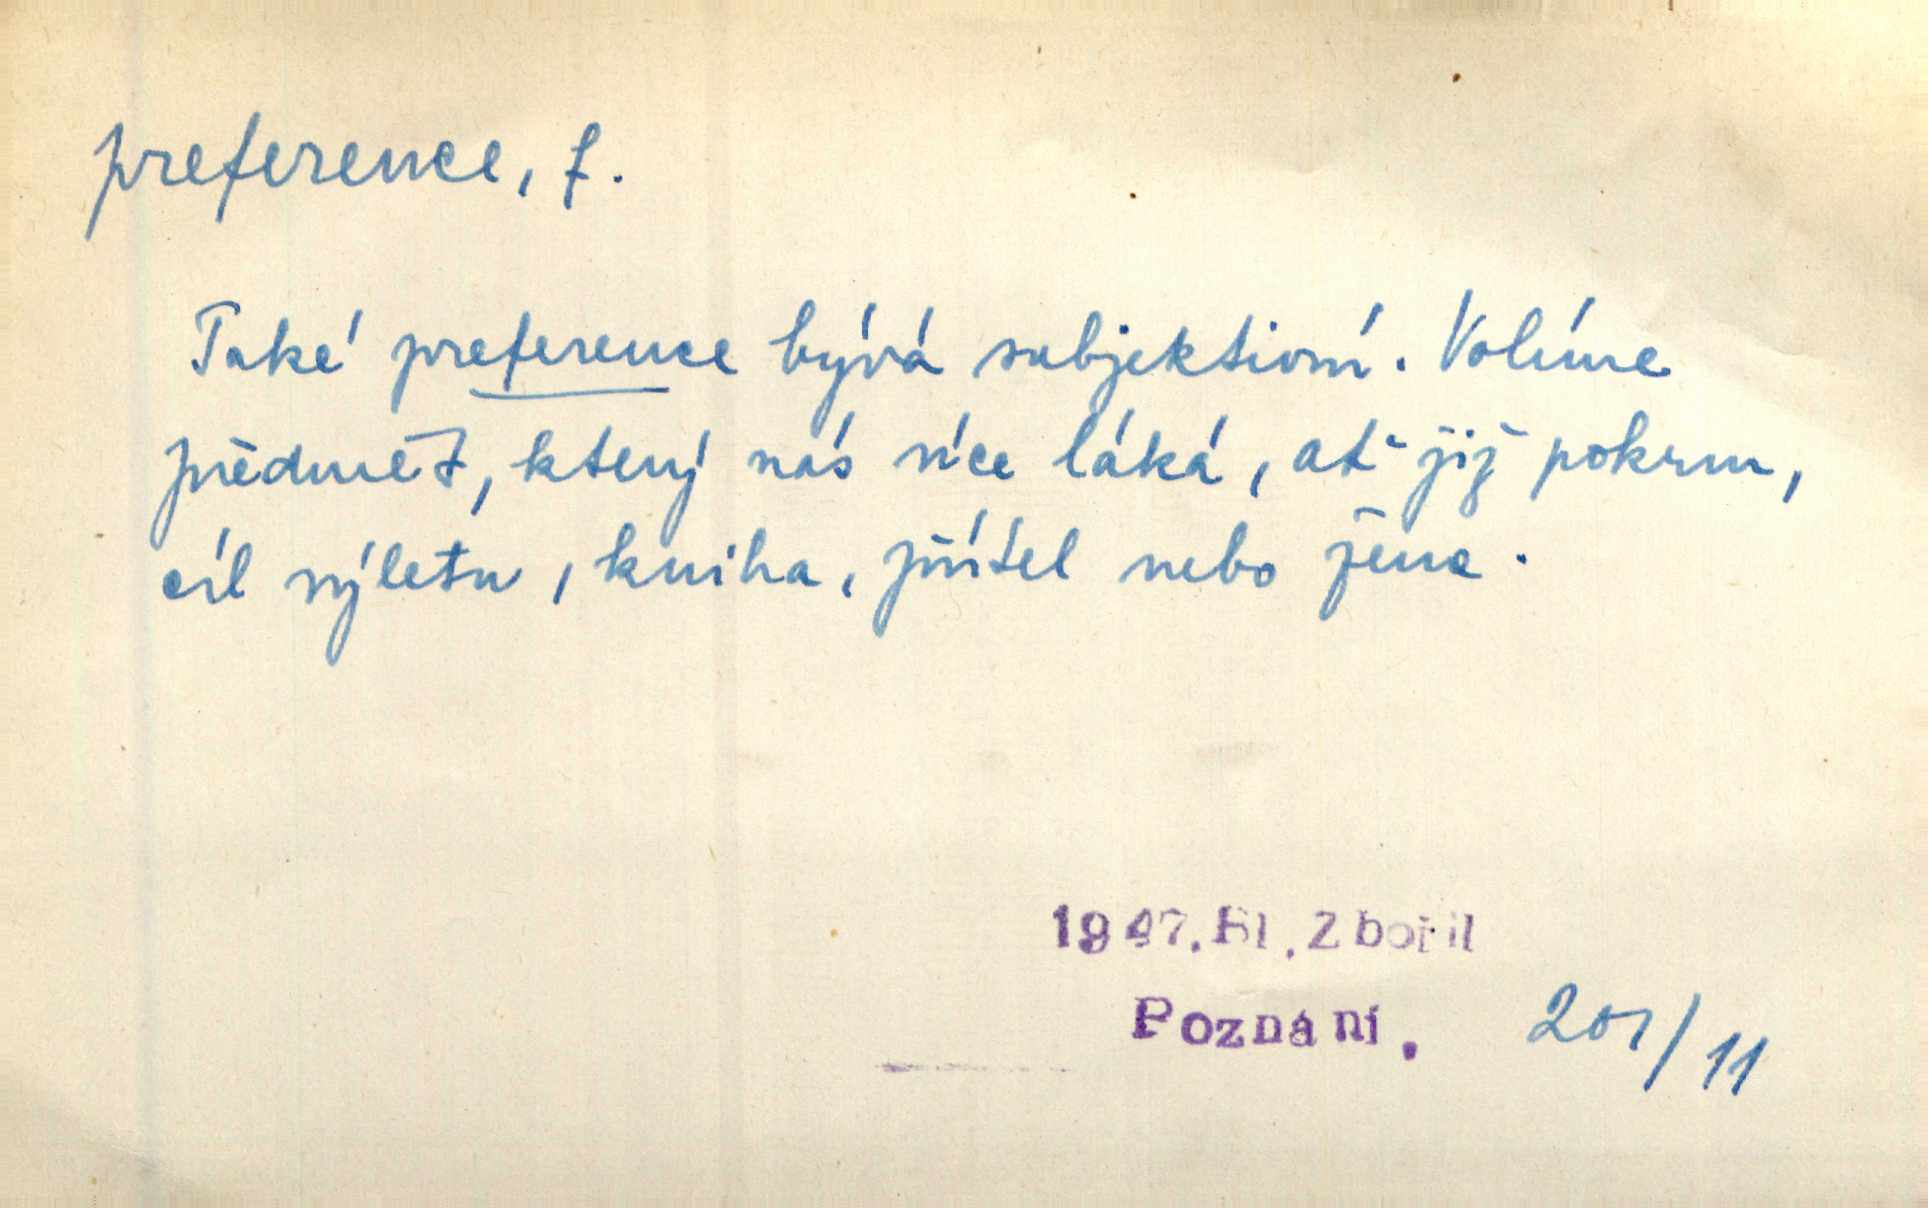 preference, f.
Také preference bývá subjektivní. Volíme
předmět, který nás více láká, ať již pokrm,
cíl výletu, kniha, přítel nebo žena.
1947. Bl. Zbořil
Poznání. 201/11